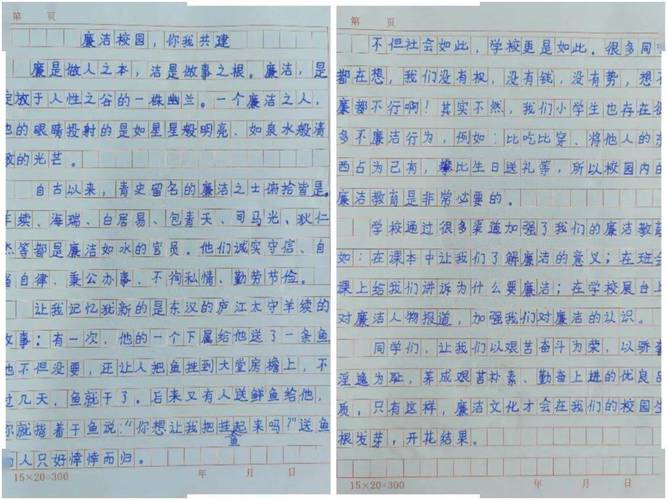 第 页
廉洁校园，你我共建
廉是做人之本，洁是做事之根。廉洁，是
放于人性之谷的一株幽兰。一个廉洁之人，
的眼睛投射的是如星星般明亮、如泉水般清
的光芒。
自古以来，青史留名的廉洁之士俯拾皆是。
续、海瑞、白居易、包青天、司马光、狄仁
杰等都是廉洁如水的官员。他们诚实守信、自
自律、秉公办事、不徇私情、勤劳节俭。
让我记忆犹新的是东汉的庐江太守羊续的
故事：有一次，他的一个下属给他送了一条鱼
他不但没要，还让人把鱼挂到大堂房檐上，不
过几天，鱼就干了。后来又有人送鲜鱼给他，
就指着干鱼说：“你想让我把鱼挂起来吗？”送鱼
人只好悻悻而归。
15×20=300 年 月 日
第 页
不但社会如此，学校更是如此。很多同
都在想，我们没有权，没有钱，没有势，想
廉都不行啊！其实不然，我们小学生也存在
多不廉洁行为，例如：比吃比穿、将他人的
西占为己有，比生日送礼等，所以校园内的
廉洁教育是非常必要的。
学校通过很多渠道加强了我们的廉洁教
如：在课本中让我们了解廉洁的意义；在班
课上给我们讲诉为什么要廉洁；在学校展台上
对廉洁人物报道，加强我们对廉洁的认识。
同学们，让我们以艰苦奋斗为荣，以骄
淫逸为耻，养成艰苦朴素、勤奋上进的优良
质，只有这样，廉洁文化才会在我们的校园
根发芽，开花结果。
15×20=300 年 月 日